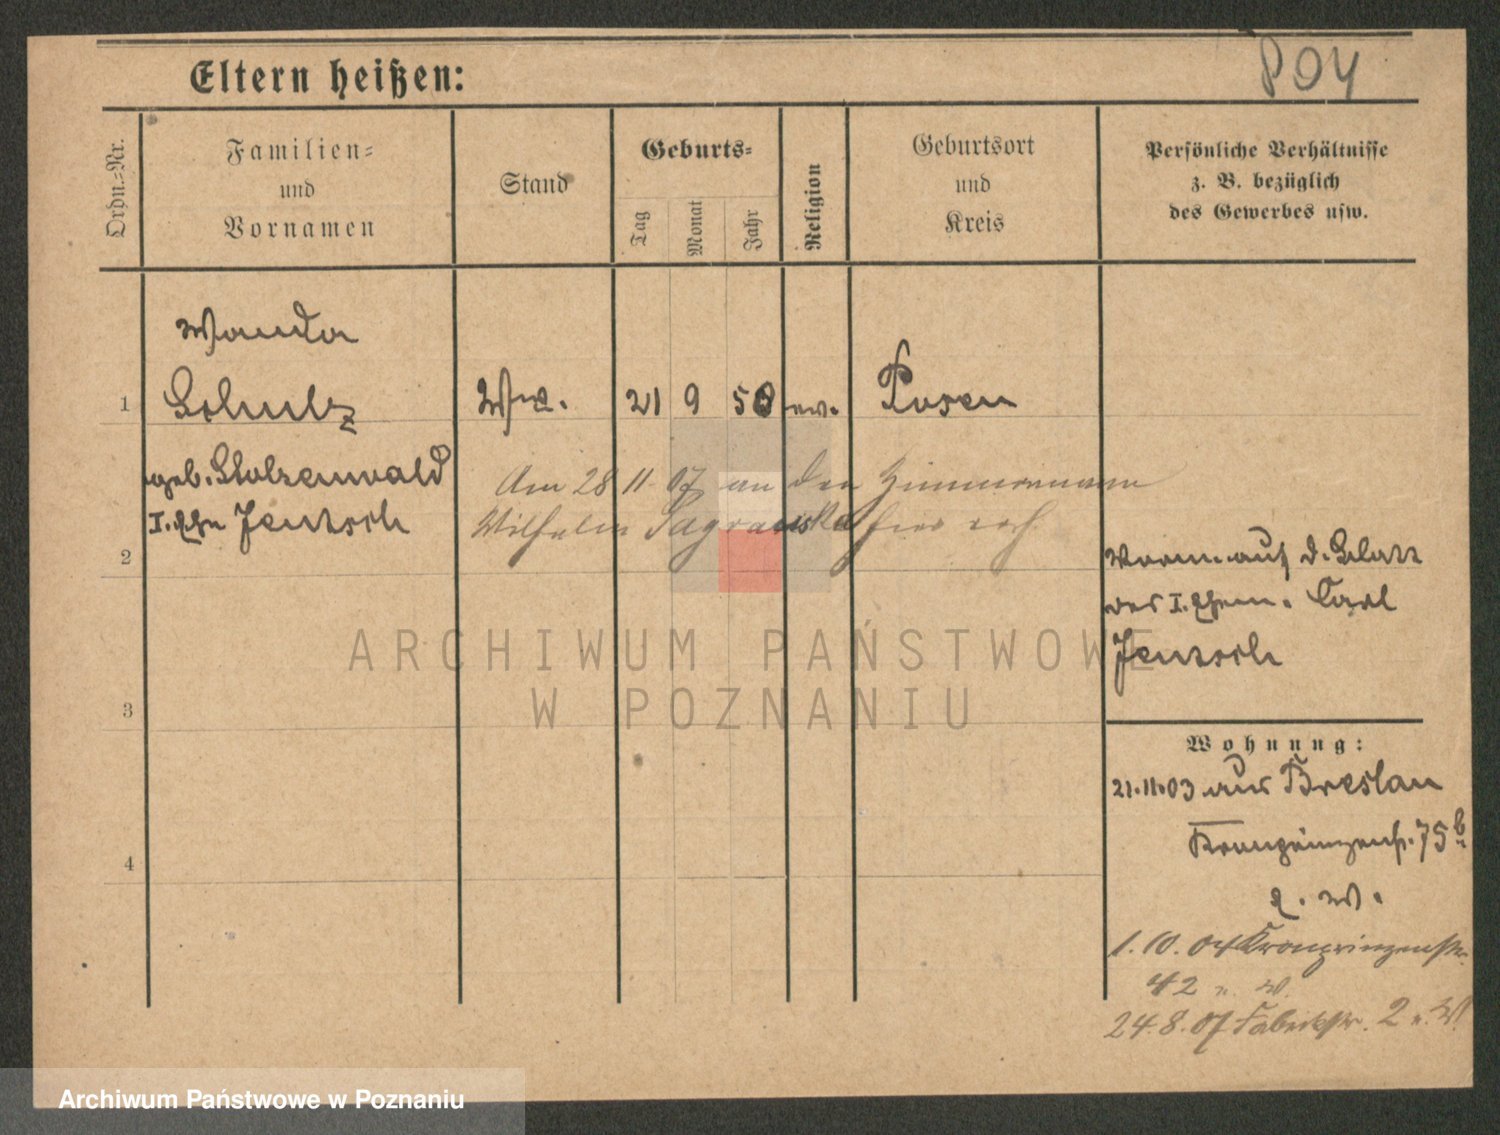 Eltern heißen:
804
Ordn.-Nr.
Familien-
und
Vornamen
Stand
Geburts-
Tag
Monat
Jahr
Religion
Geburtsort
und
Kreis
Persönliche Verhältnisse
z. B. bezüglich
des Gewerbes usw.
Wanda
1 Schulz Ww. 21 9 58 ev. Posen
geb. Stolzenwald
I. Ehe Jentsch
Am 28 11 07 an den Zimmermann
Wilhelm hier verh.
2
auf d. Blatt
des I. Ehem. Carl
Jentsch
3
Wohnung:
21.11.03 aus Breslau
Kronprinzenstr. 75b
b. W.
1.10.04 Kronprinzenstr.
42 b. W.
24.8.07 Fabrikstr. 2 b. W.
4
ARCHIWUM PAŃSTWOWE
W POZNANIU
Archiwum Państwowe w Poznaniu